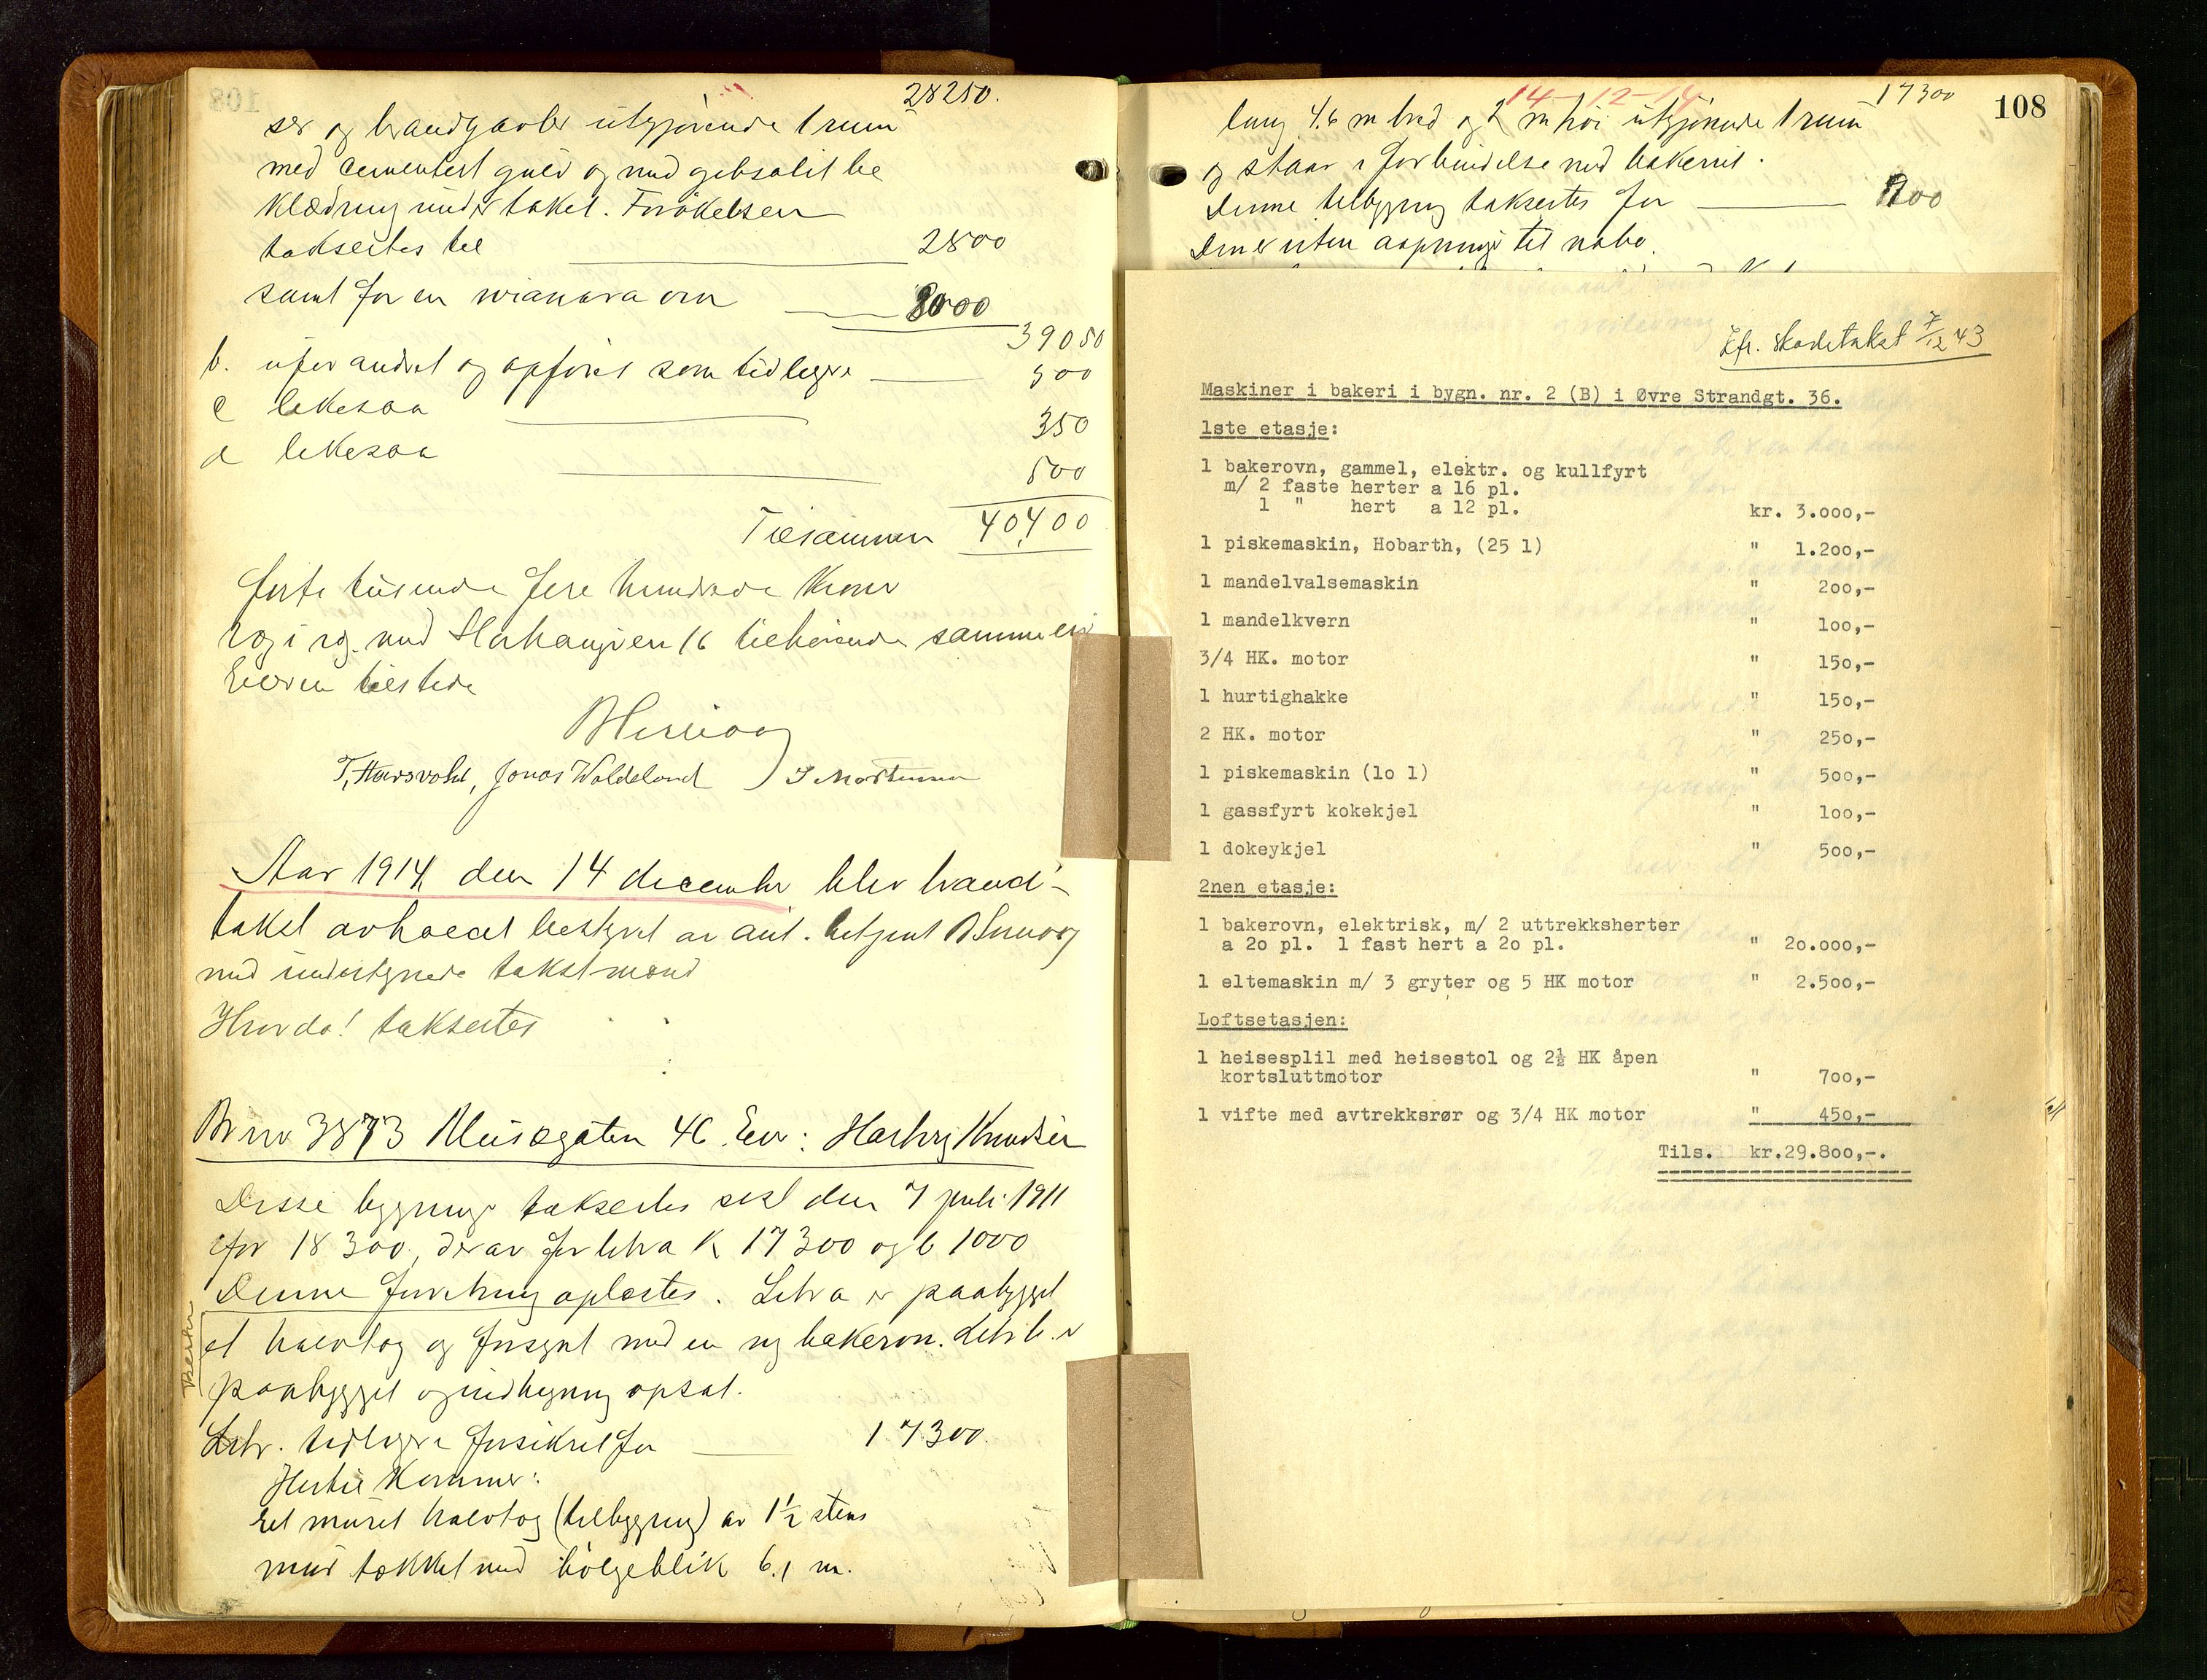 28250.
ser og brandgavler utgjørende 1 rum
med cementert gulv og med gibsolit be
klædning under taket. Forøkelsen
taksertes til 2800
samt for en ovn 8000
39050
b. uforandret og opføres som tidligere 500
c likesaa 350
d likesaa 500
Tilsammen 40,400
firti tusende fire hundrede Kroner
med Haukangven 16 tilhørende samme eier
Eieren tilstede
T. Hursvold, Jonas Waldeland J Mortensen
Aar 1914 den 14 december blev brand-
takst avholdt bestyret av aut. betjent
med undertegnede takstmænd
Hvorda! taksertes
Br nr 3873 Musegaten 46 Eier: Hartvig Knudsen
Disse bygninger taksertes sist den 7 juli 1911
for 18300, derav for litra K 17300 og b 1000
Denne forretning oplæstes. Litra er paabygget
et halvtag og forsynt med en ny bakerovn. Litr b. er
paabygget og indhegning opsat.
Litr. tidligere forsikret for 17300.
Hertil kommer:
Et muret halvtag (tilbygning) av 1½ stens
mur tækket med bølgeblik 6.1 m.
14-12-14
17300
108
lang 4.6 m bred og 2 m høi utgjørende 1 rum
og staar i forbindelse med bakeriet.
Denne tilbygning taksertes for
Den er uten aapninger til nabo.
Kfr. Skadetakst 7/12 43
Maskiner i bakeri i bygn. nr. 2 (B) i Øvre Strandgt. 36.
1ste etasje:
1 bakerovn, gammel, elektr. og kullfyrt
m/ 2 faste herter a 16 pl.
1 " hert a 12 pl. kr. 3.000,-
1 piskemaskin, Hobarth, (25 l) " 1.200,-
1 mandelvalsemaskin " 200,-
1 mandelkvern " 100,-
3/4 HK. motor " 150,-
1 hurtighakke " 150,-
2 HK. motor " 250,-
1 piskemaskin (10 l) " 500,-
1 gassfyrt kokekjel " 100,-
1 dokeykjel " 500,-
2nen etasje:
1 bakerovn, elektrisk, m/ 2 uttrekksherter
a 20 pl. 1 fast hert a 20 pl. " 20.000,-
1 eltemaskin m/ 3 gryter og 5 HK motor " 2.500,-
Loftsetasjen:
1 heisesplil med heisestol og 2½ HK åpen
kortsluttmotor " 700,-
1 vifte med avtrekksrør og 3/4 HK motor " 450,-
Tils. kr.29.800,-.